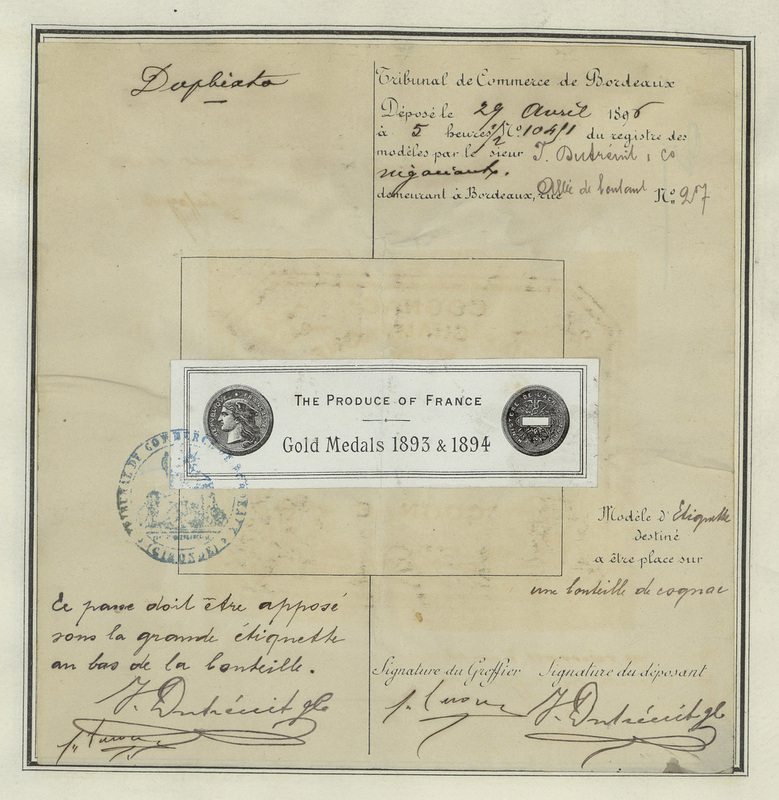 Duplicata
Tribunal de Commerce de Bordeaux
Déposé le 29 Avril 1896
à 5 heures 1/2 N° 10451 du registre des
modèles par le sieur J. Dutrénit & Co
négociants.
demeurant à Bordeaux, rue Allée de Boutaut N° 27
THE PRODUCE OF FRANCE
Gold Medals 1893 & 1894
TRIBUNAL DE COMMERCE DE BORDEAUX
(GIRONDE)
Modèle d'Etiquette
destiné
a être place sur
une bouteille de cognac
Ce passe doit être apposé
sous la grande étiquette
au bas de la bouteille.
Signature du Greffier Signature du déposant
J. Dutrénit & Co
J. Dutrénit & Co